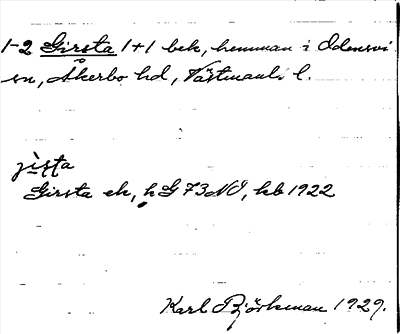 1-2 Girsta 1+1 bek, hemman i Odensvi
sn, Åkerbo hd, Västmanl. l.
jìsta
Girsta ek, h G 73 NO, kb 1922
Karl Björkman 1929.